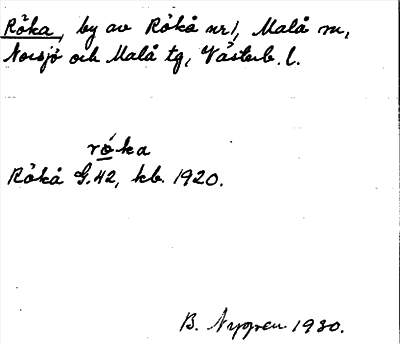 Röka, by av Rökå nr 1, Malå sn,
Norsjö och Malå tg, Västerb. l.
röka
Rökå G.42, kb. 1920.
B. Nygren 1930.